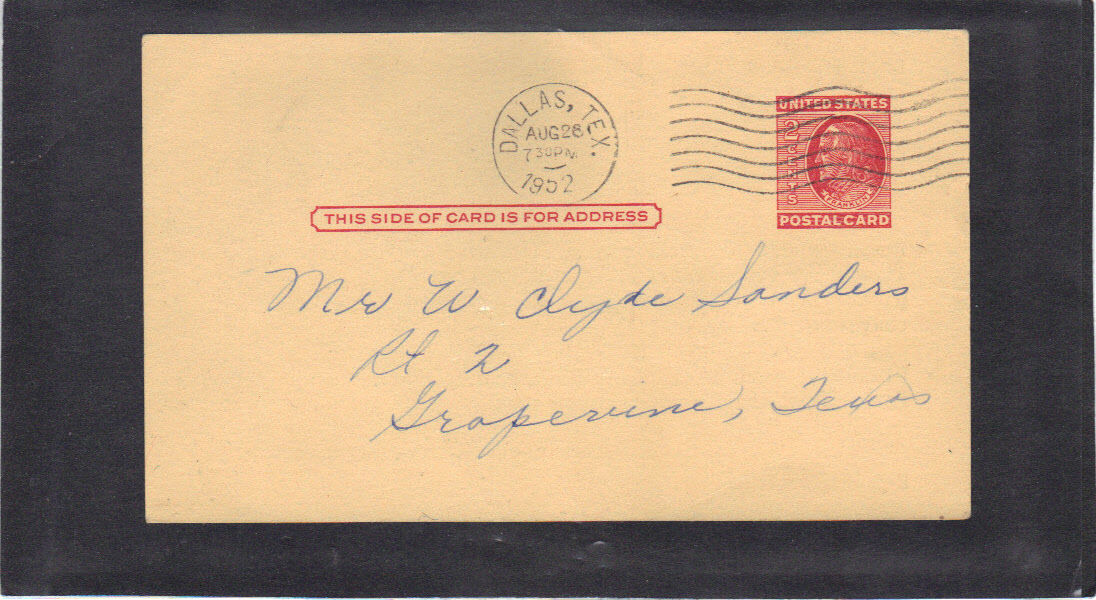 DALLAS, TEX.
AUG 28
7 30 PM
1952
UNITED STATES
2 CENTS
FRANKLIN
POSTAL CARD
THIS SIDE OF CARD IS FOR ADDRESS
Mr W Clyde Sanders
Rt 2
Grapevine, Texas